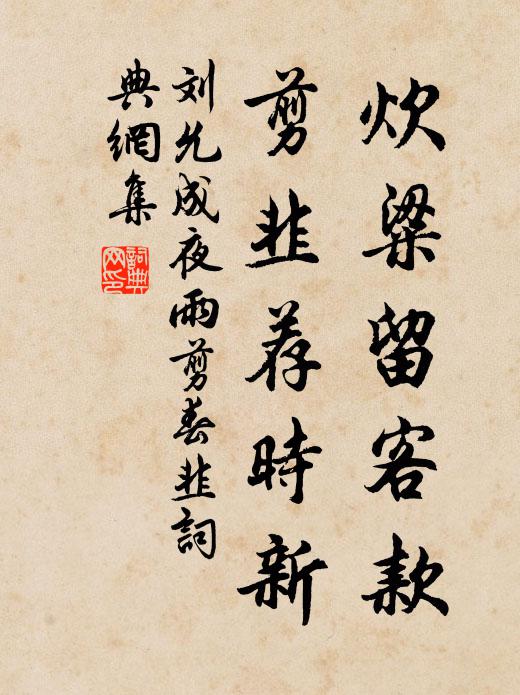 炊粱留客款
剪韭荐時新
刘允成夜雨剪春韭詞
典網集
詞典
网印